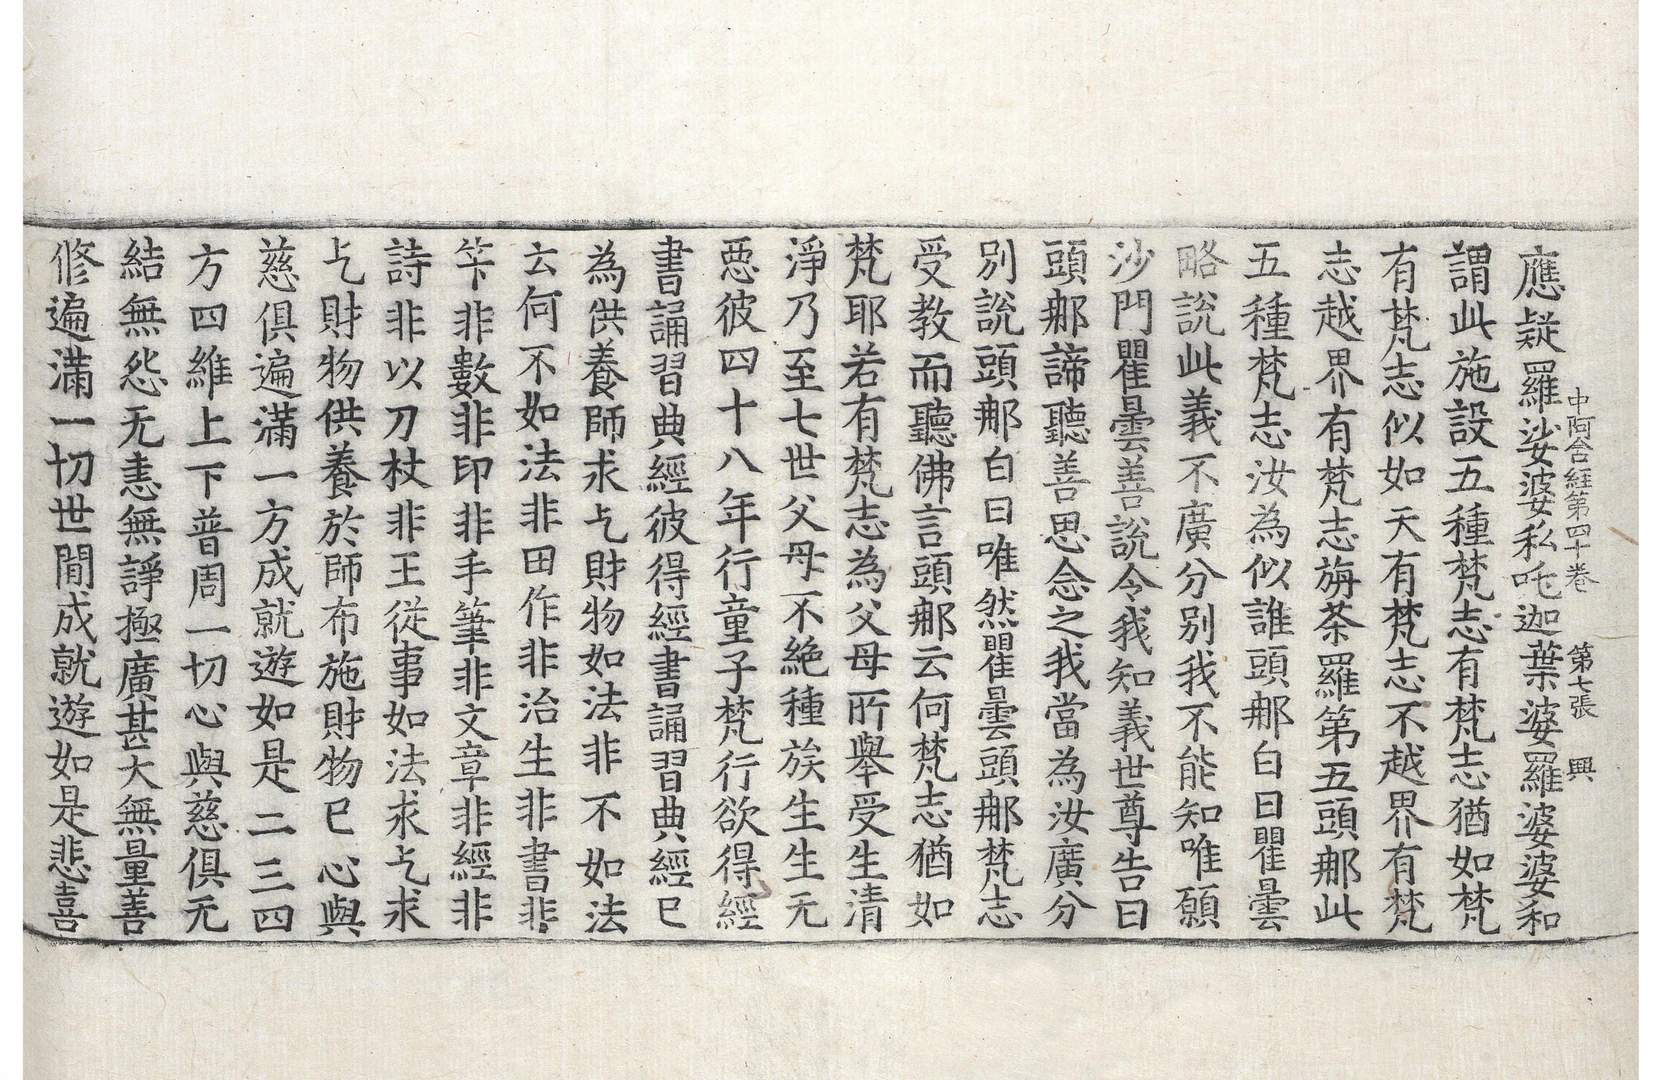 中阿含経第四十巻　第七張　興
應疑羅娑婆私吒迦葉婆羅婆婆和
謂此施設五種梵志有梵志猶如梵
有梵志似如天有梵志不越界有梵
志越界有梵志旃荼羅第五頭那此
五種梵志汝為似誰頭那白曰瞿曇
略說此義不廣分別我不能知唯願
沙門瞿曇善說令我知義世尊告曰
頭那諦聽善思念之我當為汝廣分
別說頭那白曰唯然瞿曇頭那梵志
受教而聽佛言頭那云何梵志猶如
梵耶若有梵志為父母所舉受生清
淨乃至七世父母不絶種族生生无
惡彼四十八年行童子梵行欲得經
書誦習典經彼得經書誦習典經已
為供養師求乞財物如法非不如法
云何不如法非田作非治生非書非
笇非數非印非手筆非文章非經非
詩非以刀杖非王從事如法求乞求
乞財物供養於師布施財物已心與
慈俱遍滿一方成就遊如是二三四
方四維上下普周一切心與慈俱无
結無怨无恚無諍極廣甚大無量善
修遍滿一切世間成就遊如是悲喜